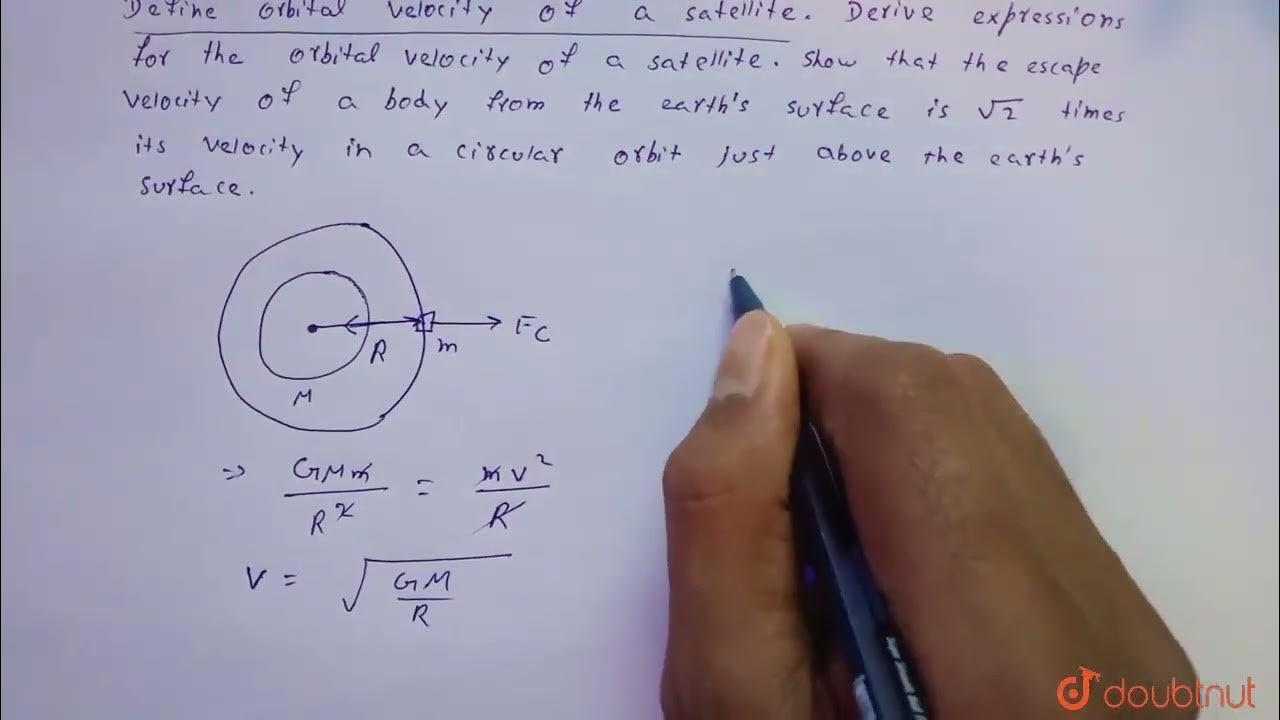 Define orbital velocity of a satellite. Derive expressions
for the orbital velocity of a satellite. Show that the escape
velocity of a body from the earth's surface is √2 times
its velocity in a circular orbit just above the earth's
surface.
Fc
R
m
M
=> GMm/R² = mv²/R
V = √(GM/R)
doubtnut